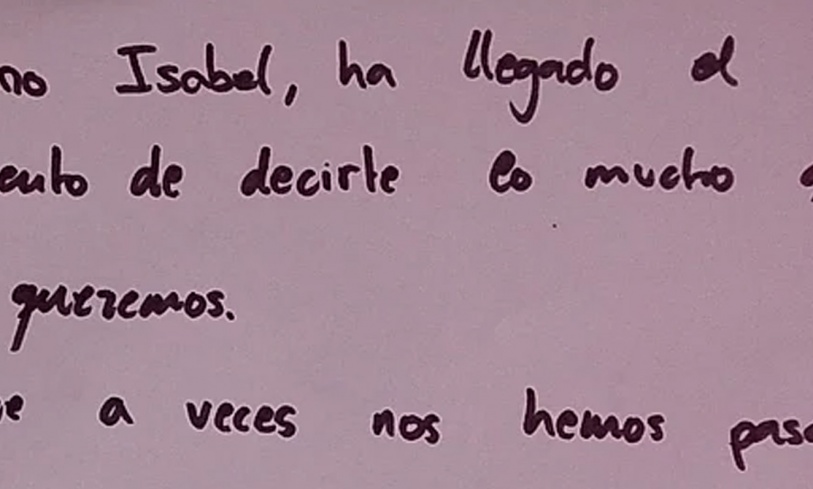 no Isabel, ha llegado el
ento de decirte lo mucho
queremos.
e a veces nos hemos pasa